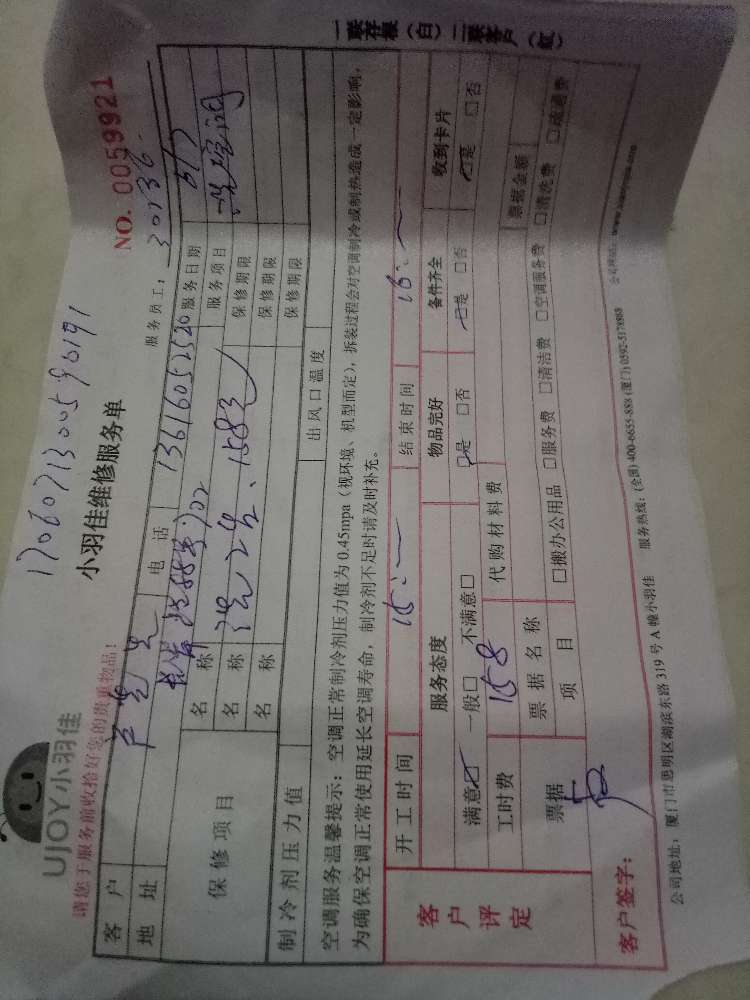 1706071300590191
UJOY小羽佳
小羽佳维修服务单
NO. 0059921
请您于服务前收拾好您的贵重物品!
服务员工: 30136
客户 电话 13616052520 服务日期 6/7
地址 服务项目
保修项目 名称 保修期限
名称 保修期限
名称 保修期限
制冷剂压力值 出风口温度
空调服务温馨提示:空调正常制冷剂压力值为0.45mpa(视环境、机型而定),拆装过程会对空调制冷或制热造成一定影响,
为确保空调正常使用延长空调寿命,制冷剂不足时请及时补充。
开工时间 15:— 结束时间 16:—
客户评定 服务态度 物品完好 备件齐全 收到卡片
满意☑ 一般□ 不满意□ ☑是 □否 ☑是 □否 ☑是 □否
工时费 158 代购材料费
票据 票据名称 票据金额
项目 □搬办公用品 □服务费 □清洁费 □空调服务费 □清洗费 □疏通费
客户签字:
公司地址:厦门市思明区湖滨东路319号A幢小羽佳 服务热线:(全国)400-6655-888 (厦门)0592-5178888 公司网站:
一联存根(白)二联客户(红)